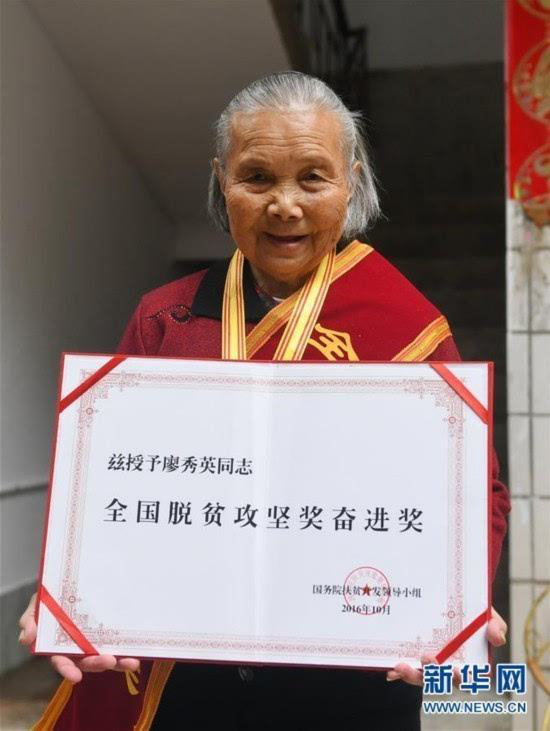 兹授予廖秀英同志
全国脱贫攻坚奖奋进奖
国务院扶贫开发领导小组
2016年10月
全
新华网
WWW.NEWS.CN